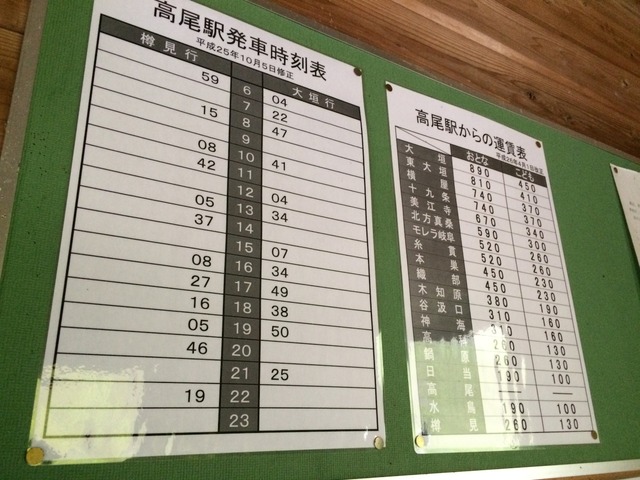 高尾駅発車時刻表
平成25年10月5日修正
樽見行 大垣行
59 6 04
7 22
15 8 47
9
08 10 41
42 11
12 04
05 13 34
37 14
15 07
08 16 34
27 17 49
16 18 38
05 19 50
46 20
21 25
19 22
23
高尾駅からの運賃表
平成26年4月1日改正
おとな こども
大垣 890 450
東大垣 810 410
横屋 740 370
十九条 740 370
美江寺 670 340
北方真桑 590 300
モレラ岐阜 520 260
糸貫 520 260
本巣 450 230
織部 450 230
木知原 380 190
谷汲口 310 160
神海 310 160
高科 260 130
鍋原 260 130
日当 190 100
高尾 — —
水鳥 190 100
樽見 260 130